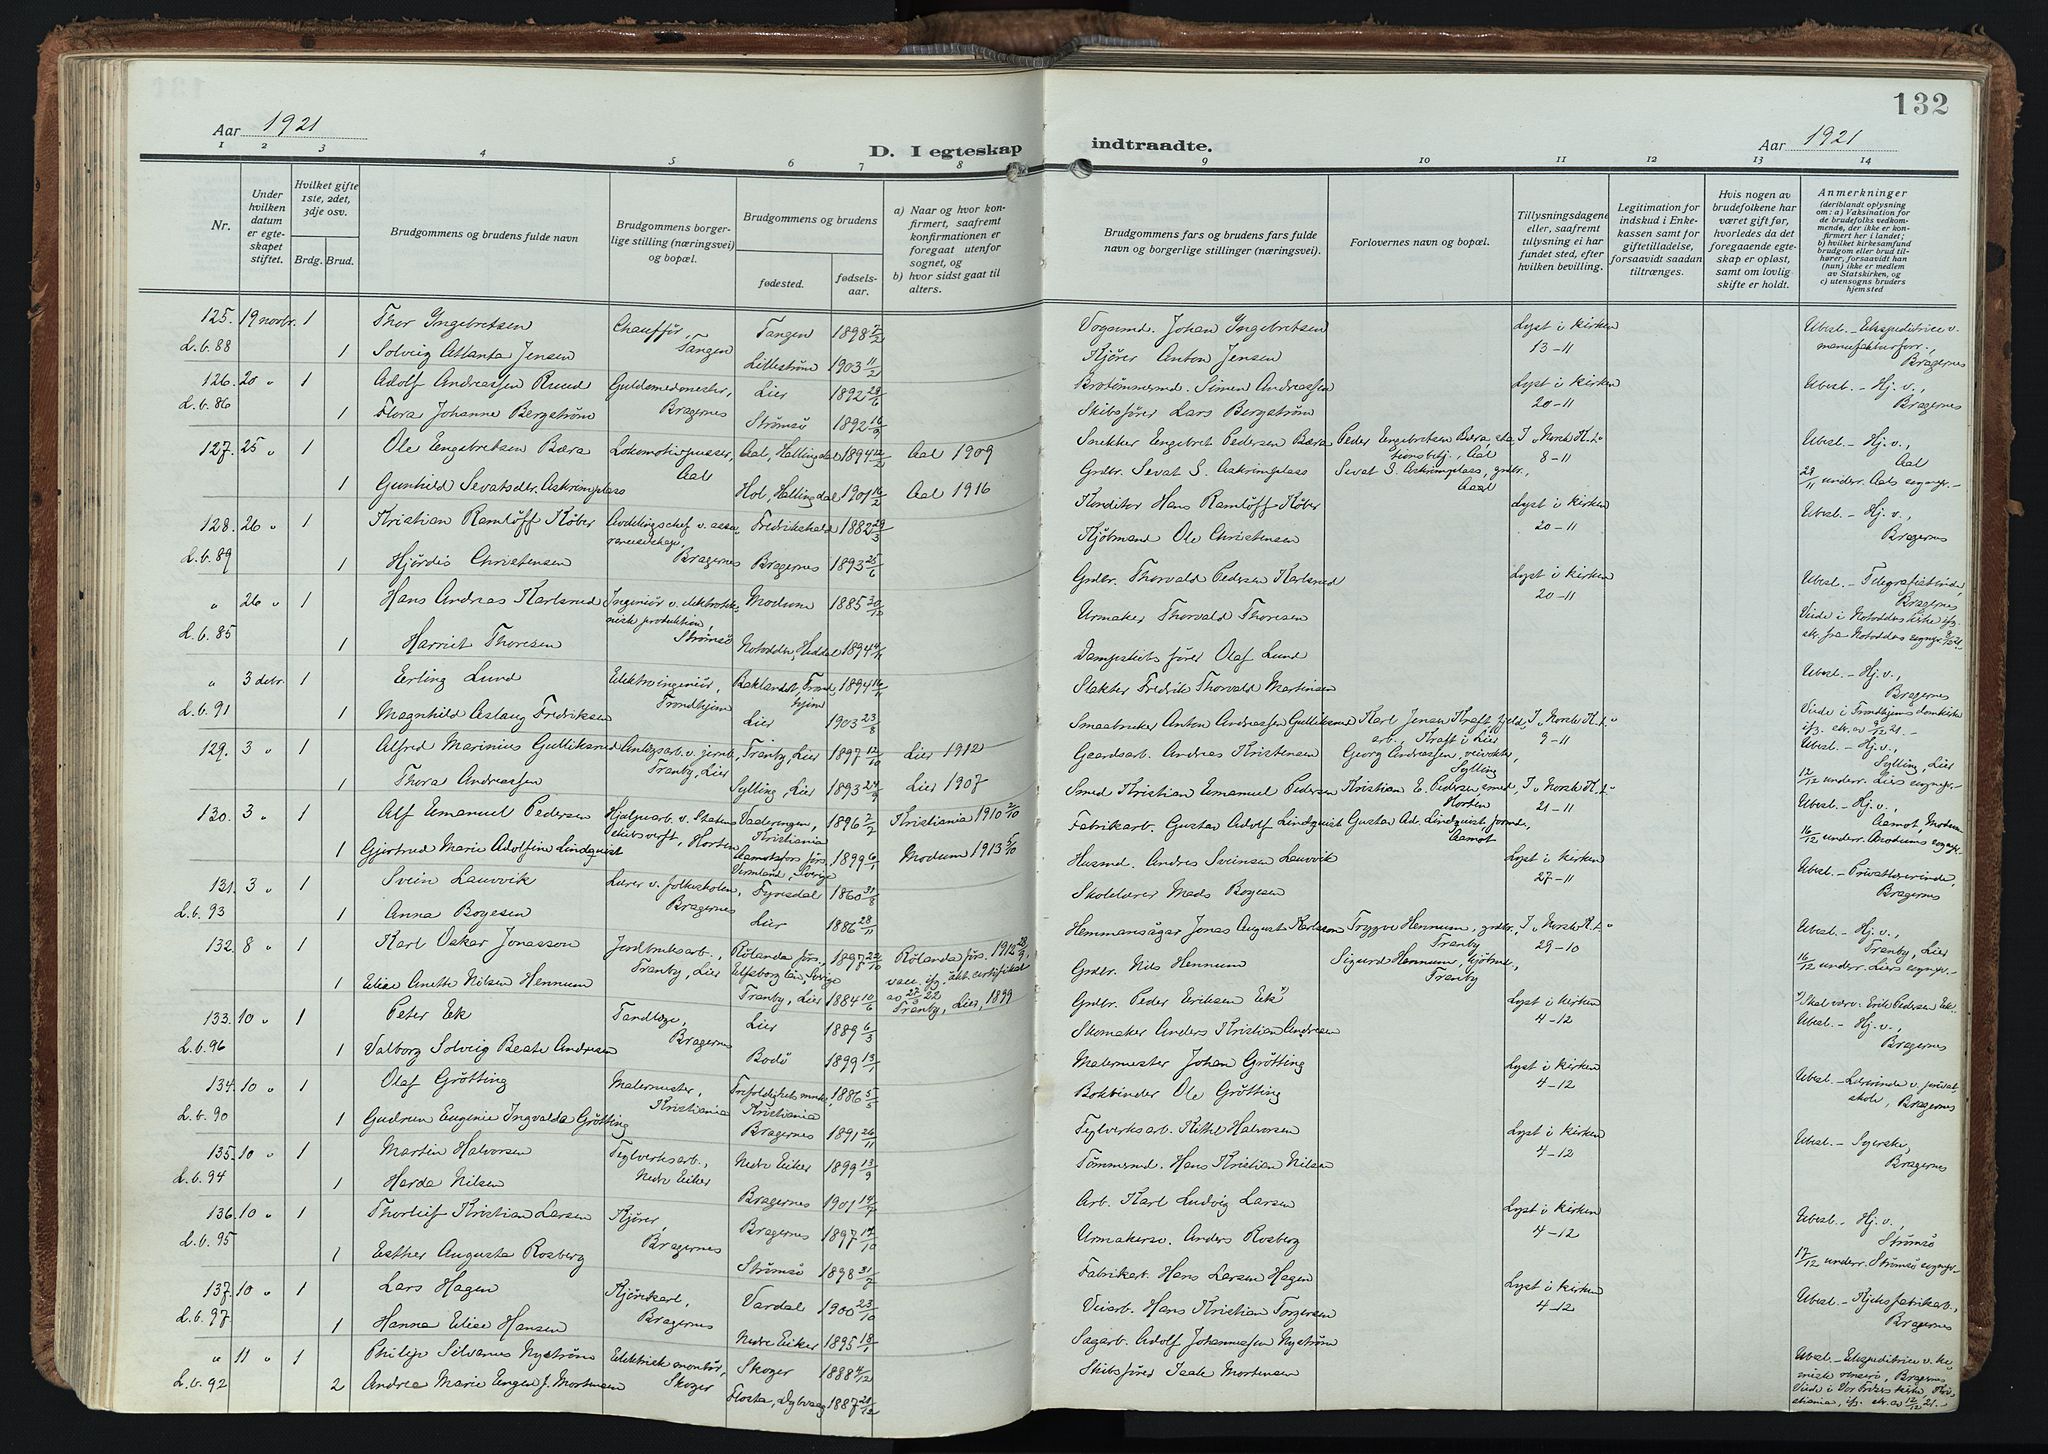 132
Aar 1921
D. I egteskap indtraadte.
Aar 1921
1 2 3 4 5 6 7 8 9 10 11 12 13 14
Nr.
Under hvilken datum er egteskapet stiftet.
Hvilket gifte 1ste, 2det, 3dje osv.
Brdg. Brud.
Brudgommens og brudens fulde navn
Brudgommens borgerlige stilling (næringsvei) og bopæl.
Brudgommens og brudens
fødested.
fødselsaar.
a) Naar og hvor konfirmert, saafremt konfirmationen er foregaat utenfor sognet, og
b) hvor sidst gaat til alters.
Brudgommens fars og brudens fars fulde navn og borgerlige stillinger (næringsvei).
Forlovernes navn og bopæl.
Tillysningsdagene eller, saafremt tillysning ei har fundet sted, efter hvilken bevilling.
Legitimation for indskud i Enkekassen samt for giftetilladelse, forsaavidt saadan tiltrænges.
Hvis nogen av brudefolkene har været gift før, hvorledes da det foregaaende egteskap er opløst, samt om lovlig skifte er holdt.
Anmerkninger (deriblandt oplysning om: a) Vaksination for de brudefolks vedkommende, der ikke er konfirmert her i landet; b) hvilket kirkesamfund brudgom eller brud tilhører, forsaavidt han (hun) ikke er medlem av Statskirken, og c) utensogns bruders hjemsted
125. 19 novbr. 1 Thor Ingebretsen Chauffør, Tangen Tangen 1898 7/2 Vognmd. Johan Ingebretsen Lyst i kirken 13-11 Ubesl. - Ekspeditrice v. manufakturforr., Bragernes
L.b. 88 1 Solveig Atlanta Jensen Lillestrøm 1903 11/2 Kjører Anton Jensen
126. 20 " 1 Adolf Andreassen Ruud Guldsmedmester, Bragernes Lier 1892 29/6 Brotømmermd. Simen Andreassen Lyst i kirken 20-11 Ubesl. - Hj. v., Bragernes
L.b. 86 1 Flora Johanne Bergstrøm Strømsø 1892 16/9 Skibsfører Lars Bergstrøm
127. 25 " 1 Ole Engebretsen Bæra Lokomotivpusser, Aal Aal, Hallingdal 1894 12/2 Aal 1909 Snekker Engebret Pedersen Bæra Peder Engebretsen Bæra, stationsbetj., Aal I "Norsk K.t." 8-11 Ubesl. - Hj. v., Aal
1 Gunhild Sevatsdr. Askrimplass Hol, Hallingdal 1901 16/2 Aal 1916 Grdbr. Sevat S. Askrimplass Sevat S. Askrimplass, grdbr., Aal 29/11 underr. Aals sognepr. -
128. 26 " 1 Kristian Ramlöff Köber Avdelingschef v. assuranceselskap, Bragernes Fredrikshald 1882 29/3 Konditor Hans Ramlöff Köber Lyst i kirken 20-11 Ubesl. - Hj. v., Bragernes
L.b. 89 1 Hjördis Christensen Bragernes 1893 25/6 Kjøbmand Ole Christensen
" 26 " 1 Hans Andreas Karlsrud Ingeniør v. elektroteknisk produktion, Strømsø Modum 1885 30/10 Grdbr. Thorvald Pedersen Karlsrud Lyst i kirken 20-11 Ubesl. - Telegrafistinde, Bragernes
L.b. 85 1 Harriet Thoresen Notodden, Heddal 1894 Urmaker Thorvald Thoresen Viede i Notoddens kirke ifg. skr. fra Notoddens sognepr.
" 3 debr. 1 Erling Lund Elektroingeniør, Trondhjem Baklandet, Trondhjem 1894 16/11 Dampskibsfører Olaf Lund Ubesl. - Hj. v., Bragernes
L.b. 91 1 Magnhild Aslaug Fredriksen Lier 1903 23/8 Slakter Fredrik Thorvald Martinsen Viede i Trondhjems domkirke ifg. skr. av 9/12 21. -
129. 3 " 1 Alfred Marinius Gulliksrud Anlægsarb. v. jernb., Tranby, Lier Tranby, Lier 1897 12/10 Lier 1912 Smaabruker Anton Andreassen Gulliksrud Karl Jensen Kraft, arb., Kraft i Lier I "Norsk K.t." 9-11 Ubesl. - Hj. v., Sylling, Lier
1 Thora Andreassen Sylling, Lier 1893 24/9 Lier 1907 Gaardsarb. Andreas Kristensen Georg Andreassen, veivokter, Sylling 12/12 underr. Liers sognepr. -
130. 3 " 1 Alf Emanuel Pedersen Hjælpearb. v. Statens skibsverft, Horten Vaalerengen, Kristiania 1896 2/2 Kristiania 1910 2/10 Smed Kristian Emanuel Pedersen Kristian E. Pedersen, smed, Horten I "Norsk K.t." 21-11 Ubesl. - Hj. v., Aamot, Modum
1 Gjertrud Marie Adolfine Lindquist Aamotsfors förs. Vermland, Sverige 1899 6/1 Modum 1913 5/10 Fabrikarb. Gustav Adolf Lindquist Gustav Ad. Lindquist, formd., Aamot 16/12 underr. Modums sognepr.
131. 3 " 1 Svein Lauvvik Lærer v. folkeskolen, Bragernes Fyresdal 1860 31/8 Husmd. Andres Sveinsen Lauvvik Lyst i kirken 27-11 Ubesl. - Privatlærerinde, Bragernes
L.b. 93 1 Anna Boyesen Lier 1886 28/11 Skolelærer Mads Boyesen
132. 8 " 1 Karl Oskar Jonasson Jordbruksarb., Tranby, Lier Rölanda förs., Elfsborg län, Sverige 1897 22/10 Rölanda förs. 1912 vacc. ifg. atte. certifikat av 27/3 22 Hemmansägar Jonas August Karlsson Trygve Hennum, grdbr., Tranby I "Norsk K.t." 29-10 Ubesl. - Hj. v., Tranby, Lier
1 Elise Anette Nilsen Hennum Tranby, Lier 1884 10/6 Tranby, Lier, 1899 Grdbr. Nils Hennum Sigurd Hennum, gjøbmd., Tranby 16/12 underr. Liers sognepr. -
133. 10 " 1 Peter Eek Tandlæge, Bragernes Lier 1889 6/3 Grdbr. Peder Eriksen Eek *) Lyst i kirken 4-12 *) Skal være: Erik Pedersen Eek. Ubesl. - Hj. v., Bragernes
L.b. 96 1 Valborg Solveig Beate Andresen Bodø 1899 13/1 Skomaker Anders Kristian Andresen
134. 10 " 1 Olaf Grøtting Malermester, Kristiania Trefoldighets mnh., Kristiania 1886 5/5 Malermester Johan Grøtting Lyst i kirken 4-12 Ubesl. - Lærerinde v. privatskole, Bragernes
L.b. 90 1 Gudrun Eugenie Ingvalda Grøtting Bragernes 1891 26/11 Bokbinder Ole Grøtting
135. 10 " 1 Martin Halvorsen Teglverksarb., Nedre Eiker Nedre Eiker 1899 13/9 Teglverksarb. Kittil Halvorsen Lyst i kirken 4-12 Ubesl. - Syerske, Bragernes
L.b. 94 1 Harda Nilsen Bragernes 1901 14/7 Tømmermd. Hans Kristian Nilsen
136. 10 " 1 Thorleif Kristian Larsen Kjører, Bragernes Bragernes 1897 17/10 Arb. Karl Ludvig Larsen Lyst i kirken 4-12 Ubesl. - Hj. v., Strømsø
L.b. 95 1 Esther Augusta Rosberg Strømsø 1898 31/7 Urmakersv. Anders Rosberg 17/12 underr. Strømsø sognepr. -
137. 10 " 1 Lars Hagen Kjørekarl, Bragernes Vardal 1900 23/10 Fabrikarb. Hans Larsen Hagen Lyst i kirken 4-12 Ubesl. - Kjeksfabrikarb., Bragernes
L.b. 97 1 Hanna Elise Hansen Nedre Eiker 1895 18/1 Veiarb. Hans Kristian Torgersen
" 11 " 1 Philip Silvanus Nystrøm Elektrisk montør, Skoger Skoger 1888 4/12 Sagarb. Adolf Johannesen Nystrøm Ubesl. - Ekspeditrice v. kemiske renseri, Bragernes
L.b. 92 2 Andrea Marie Engen f. Mortensen Flosta, Dybvaag 1887 21/12 Skibsfører Teale Mortensen Viede i Vor Frelsers kirke, Kristiania, ifg. skr. av 12/12 21. -